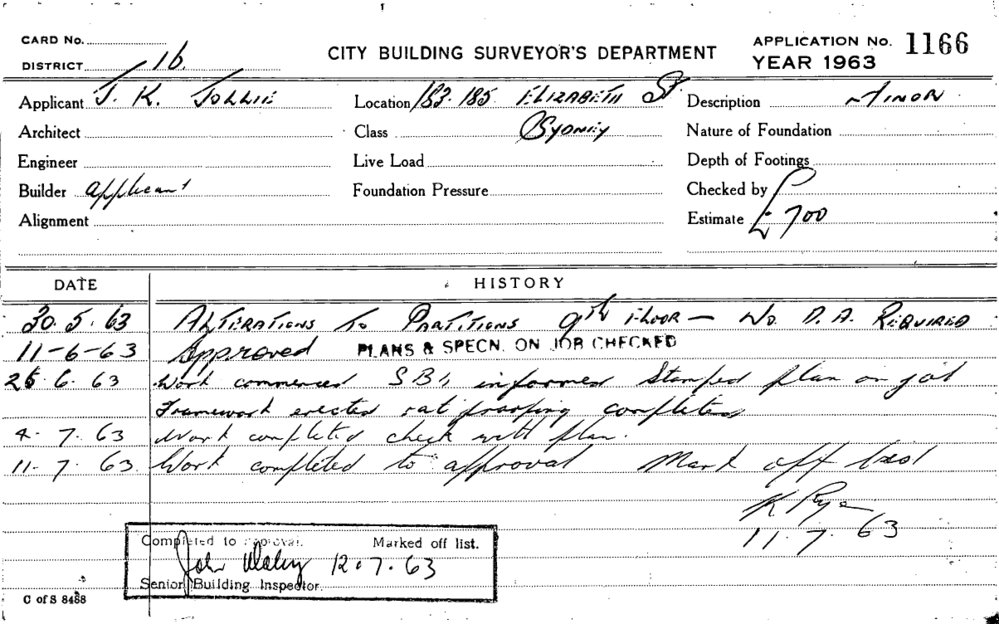 CARD No.
DISTRICT 1b
CITY BUILDING SURVEYOR'S DEPARTMENT
APPLICATION No. 1166
YEAR 1963
Applicant J. K. JOLLIE
Location 183-185 ELIZABETH St
Description MINOR
Architect
Class SYDNEY
Nature of Foundation
Engineer
Live Load
Depth of Footings
Builder applicant
Foundation Pressure
Checked by
Alignment
Estimate £700
DATE HISTORY
30.5.63 ALTERATIONS TO PARTITIONS 9TH FLOOR — NO D.A. REQUIRED
11-6-63 Approved PLANS & SPECN. ON JOB CHECKED
26.6.63 Work commenced S B I, informed Stamped plan on job
Framework erected rat proofing completed
4.7.63 Work completed check with plan.
11.7.63 Work completed to approval Mark off
K Rye
11.7.63
Completed to approval. Marked off list.
John 12.7.63
Senior Building Inspector.
C of S 8488